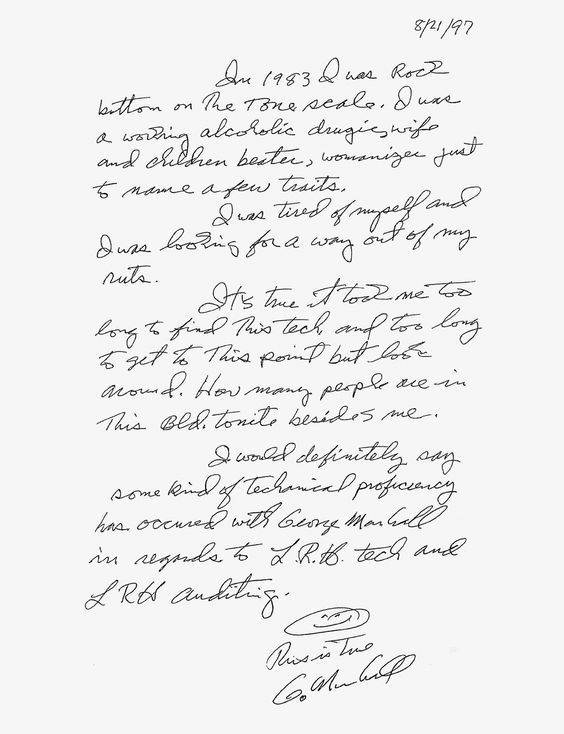 8/21/97
In 1983 I was Rock
bottom on The Tone scale. I was
a working alcoholic drugie, wife
and children beater, womanizer just
to name a few traits.
I was tired of myself and
I was looking for a way out of my
ruts.
It's true it took me too
long to find This tech, and too long
to get to This point but look
around. How many people are in
This Bld. tonite besides me.
I would definitely say
some kind of technical proficiency
has occured with George Marshall
in regards to L.R.H. tech and
LRH auditing.
This is True
G. Marshall